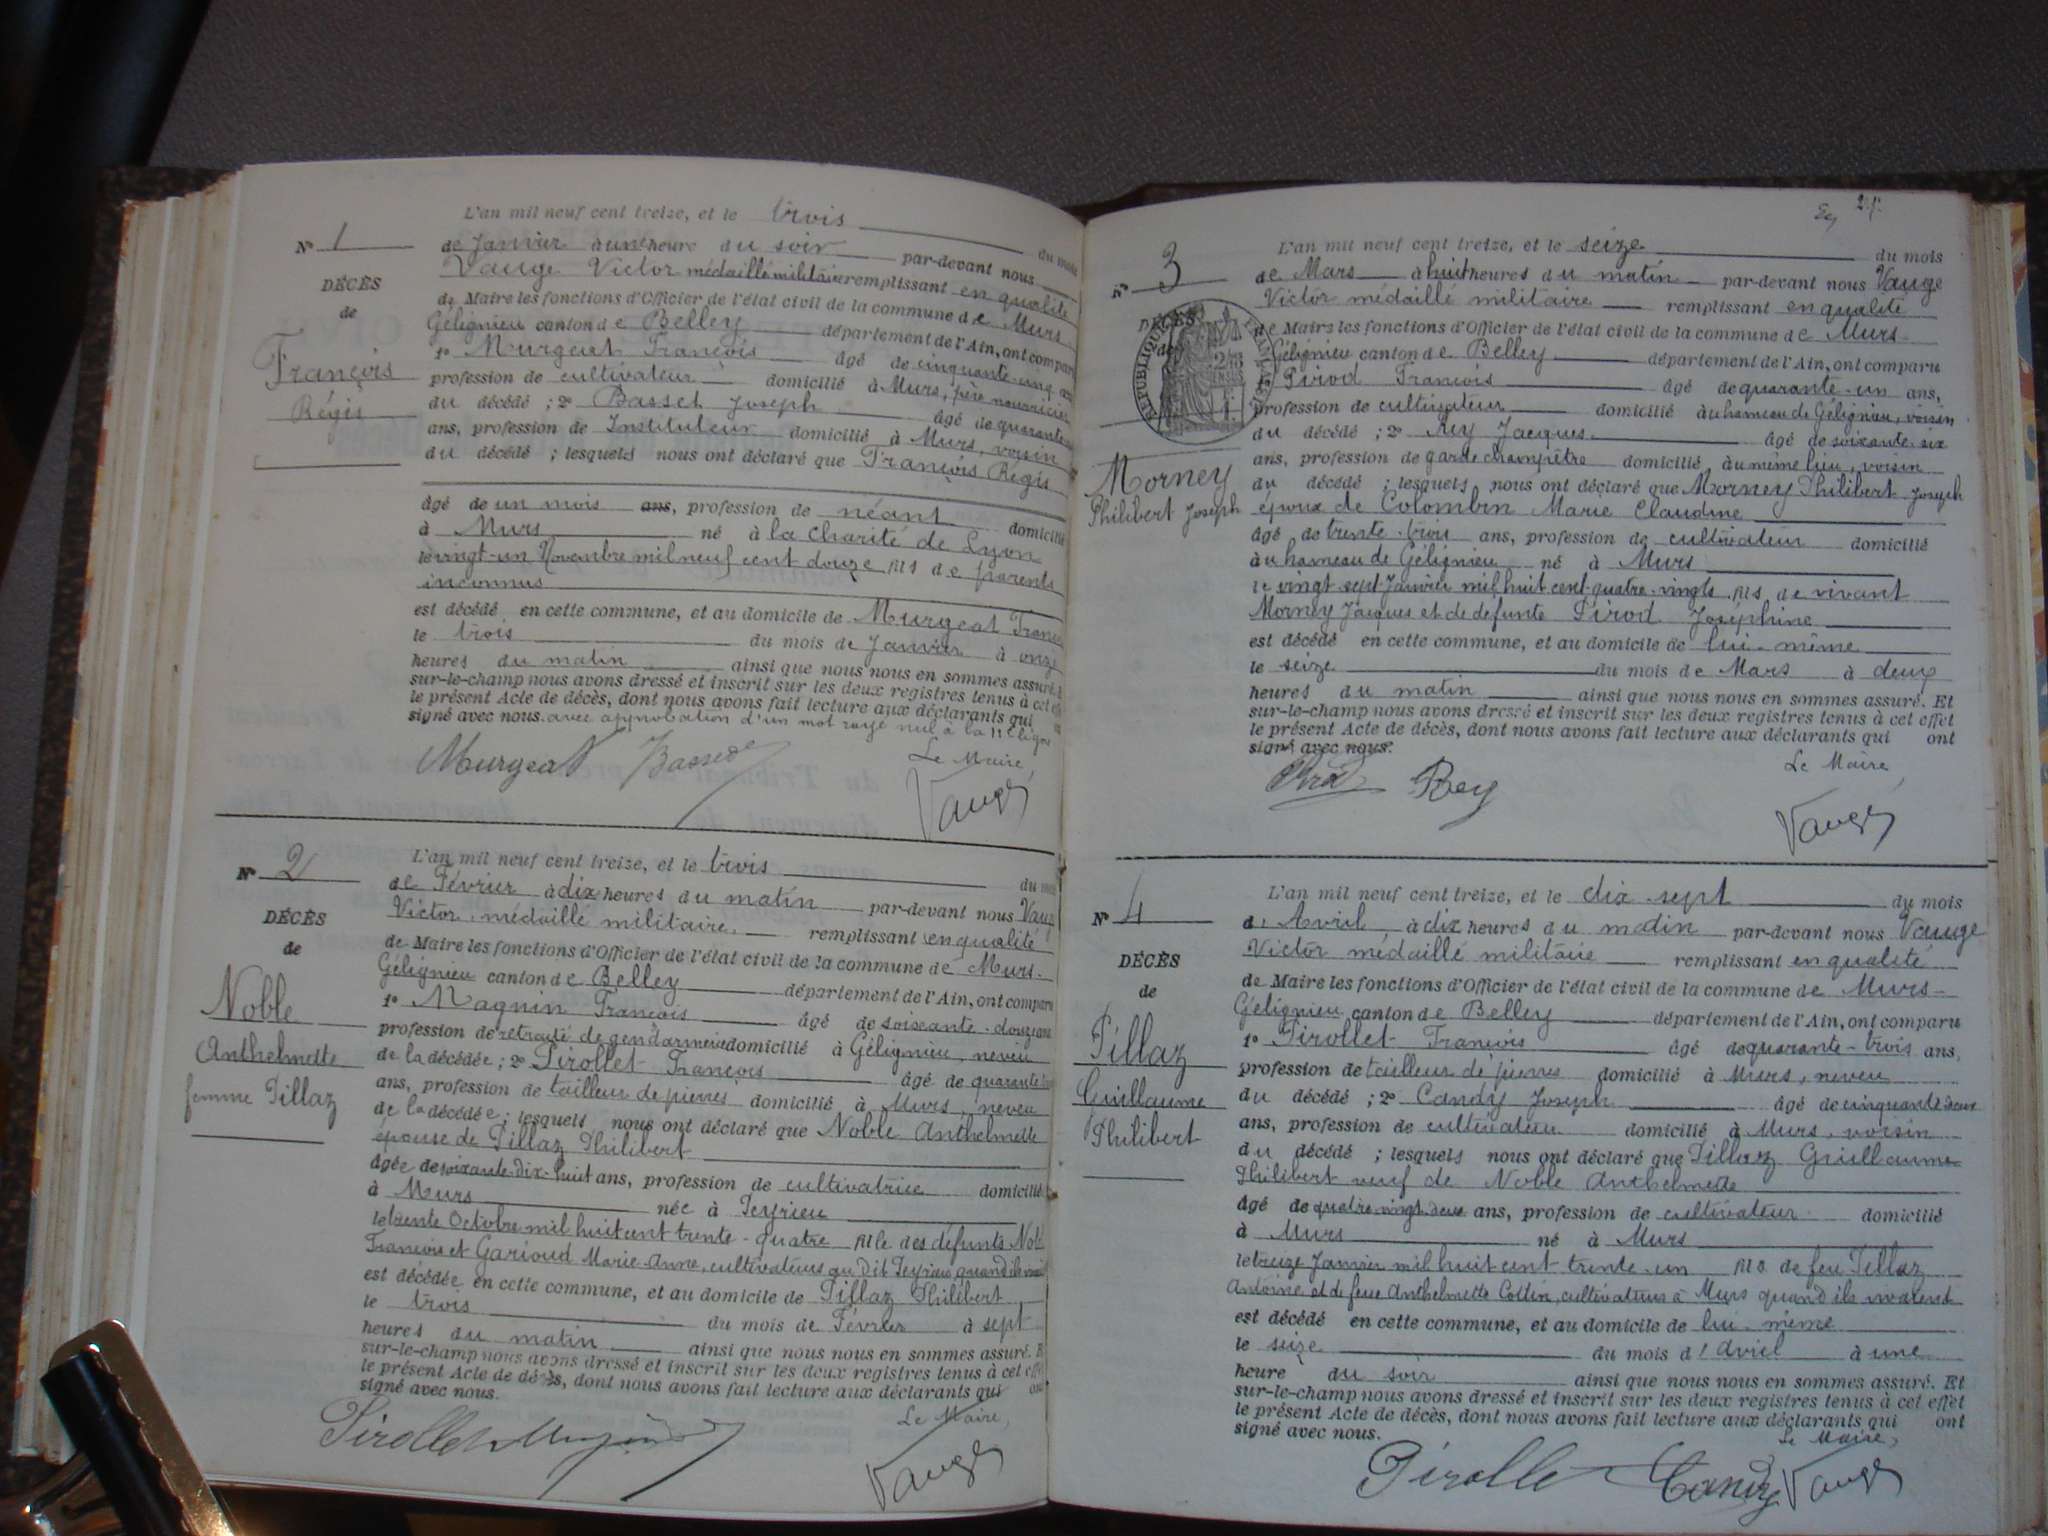 L'an mil neuf cent treize, et le trois du mois
N° 1
de Janvier à une heure du soir par-devant nous
Vauge Victor médaillé militaire remplissant en qualité
DÉCÈS
de Maire les fonctions d'Officier de l'état civil de la commune de Murs
de
Gélignieu canton de Belley département de l'Ain, ont comparu
François
1° Murgeat François âgé de cinquante-cinq ans
Régis
profession de cultivateur domicilié à Murs, père nourricier
du décédé ; 2° Basset Joseph âgé de quarante
ans, profession de Instituteur domicilié à Murs, voisin
du décédé ; lesquels nous ont déclaré que François Régis
âgé de un mois ans, profession de néant domicilié
à Murs né à la Charité de Lyon
le vingt-un Novembre mil neuf cent douze fils de parents
inconnus
est décédé en cette commune, et au domicile de Murgeat François
le trois du mois de Janvier à onze
heures du matin ainsi que nous nous en sommes assuré. Et
sur-le-champ nous avons dressé et inscrit sur les deux registres tenus à cet effet
le présent Acte de décès, dont nous avons fait lecture aux déclarants qui ont
signé avec nous. avec approbation d'un mot rayé nul à la 11e ligne
Le Maire,
Murgeat Basset
Vauge
L'an mil neuf cent treize, et le trois du mois
N° 2
de Février à dix heures du matin par-devant nous Vauge
Victor, médaillé militaire, remplissant en qualité
DÉCÈS
de Maire les fonctions d'Officier de l'état civil de la commune de Murs-
de
Gélignieu canton de Belley département de l'Ain, ont comparu
Noble
1° Magnin François âgé de soixante-douze ans
Anthelmette
profession de retraité de gendarmerie domicilié à Gélignieu, neveu
femme Pillaz
de la décédée ; 2° Pirollet François âgé de quarante-trois
ans, profession de tailleur de pierres domicilié à Murs, neveu
de la décédée ; lesquels nous ont déclaré que Noble Anthelmette
épouse de Pillaz Philibert
âgée de soixante-dix-huit ans, profession de cultivatrice domiciliée
à Murs née à Peyrieu
le trente Octobre mil huit cent trente-quatre fille des défunts Noble
François et Garioud Marie-Anne, cultivateurs au dit Peyrieu quand ils vivaient
est décédée en cette commune, et au domicile de Pillaz Philibert
le trois du mois de Février à sept
heures du matin ainsi que nous nous en sommes assuré. Et
sur-le-champ nous avons dressé et inscrit sur les deux registres tenus à cet effet
le présent Acte de décès, dont nous avons fait lecture aux déclarants qui ont
signé avec nous.
Le Maire,
Pirollet Magnin
Vauge
L'an mil neuf cent treize, et le seize du mois
N° 3
de Mars à huit heures du matin par-devant nous Vauge
Victor médaillé militaire remplissant en qualité
DÉCÈS
de Maire les fonctions d'Officier de l'état civil de la commune de Murs-
de
Gélignieu canton de Belley département de l'Ain, ont comparu
RÉPUBLIQUE FRANÇAISE
1° Pirod François âgé de quarante-un ans,
profession de cultivateur domicilié au hameau de Gélignieu, voisin
du décédé ; 2° Rey Jacques âgé de soixante-six
ans, profession de garde champêtre domicilié au même lieu, voisin
Morney
du décédé ; lesquels nous ont déclaré que Morney Philibert Joseph
Philibert Joseph
époux de Colombin Marie Claudine
âgé de trente-trois ans, profession de cultivateur domicilié
au hameau de Gélignieu né à Murs
le vingt sept Janvier mil huit cent quatre-vingts fils de vivant
Morney Jacques et de défunte Pirod Joséphine
est décédé en cette commune, et au domicile de lui-même
le seize du mois de Mars à deux
heures du matin ainsi que nous nous en sommes assuré. Et
sur-le-champ nous avons dressé et inscrit sur les deux registres tenus à cet effet
le présent Acte de décès, dont nous avons fait lecture aux déclarants qui ont
signé avec nous.
Le Maire,
Pirod Rey
Vauge
L'an mil neuf cent treize, et le dix sept du mois
N° 4
d'Avril à dix heures du matin par-devant nous Vauge
Victor médaillé militaire remplissant en qualité
DÉCÈS
de Maire les fonctions d'Officier de l'état civil de la commune de Murs-
de
Gélignieu canton de Belley département de l'Ain, ont comparu
Pillaz
1° Pirollet François âgé de quarante-trois ans,
Guillaume
profession de tailleur de pierres domicilié à Murs, neveu
Philibert
du décédé ; 2° Candy Joseph âgé de cinquante deux
ans, profession de cultivateur domicilié à Murs, voisin
du décédé ; lesquels nous ont déclaré que Pillaz Guillaume
Philibert veuf de Noble Anthelmette
âgé de quatre vingt deux ans, profession de cultivateur domicilié
à Murs né à Murs
le treize Janvier mil huit cent trente-un fils de feu Pillaz
Antoine et de feue Anthelmette Collin, cultivateurs à Murs quand ils vivaient
est décédé en cette commune, et au domicile de lui-même
le seize du mois d'Avril à une
heure du soir ainsi que nous nous en sommes assuré. Et
sur-le-champ nous avons dressé et inscrit sur les deux registres tenus à cet effet
le présent Acte de décès, dont nous avons fait lecture aux déclarants qui ont
signé avec nous.
Le Maire,
Pirollet Candy Vauge